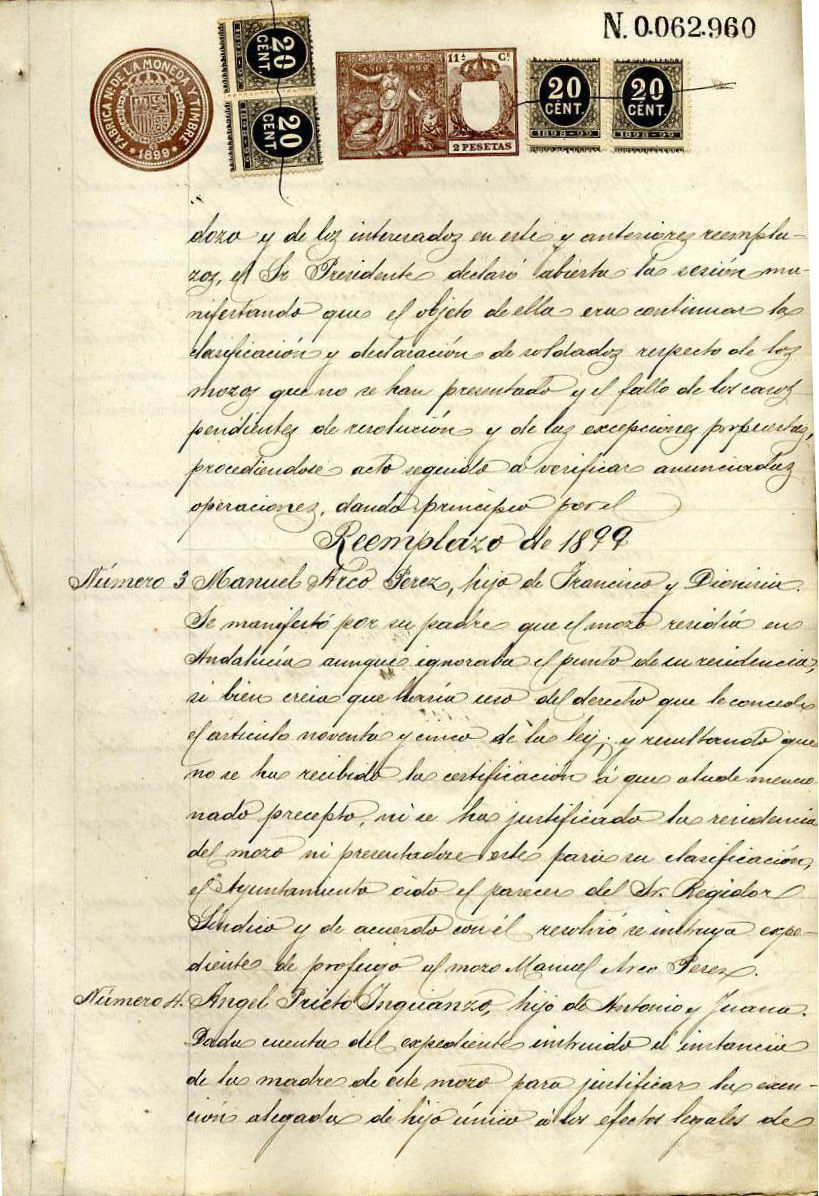 N. 0.062.960
FABRICA Nal DE LA MONEDA Y TIMBRE
* 1899 *
20 CENT.
1898-99
20 CENT.
1898-99
11ª Cl.
2 PESETAS
20 CENT.
1898-99
20 CENT.
1898-99
dozo y de los interesados en este y anteriores reempla-
zos, el Sr Presidente declaró abierta la sesión ma-
nifestando que el objeto de ella era continuar la
clasificación y declaración de soldados respecto de los
mozos que no se han presentado y el fallo de los casos
pendientes de resolución y de las excepciones propuestas,
procediendose acto seguido á verificar anunciadas
operaciones, dando principio por el
Reemplazo de 1899
Número 3 Manuel Arco Perez, hijo de Francisco y Dionisia.
Se manifestó por su padre que el mozo residía en
Andalucía aunque ignoraba el punto de su residencia,
si bien creia que haría uso del derecho que le concede
el artículo noventa y cinco de la ley; y resultando que
no se ha recibido la certificación á que alude mencio-
nado precepto, ni se ha justificado la residencia
del mozo ni presentadose este para su clasificación,
el Ayuntamiento oido el parecer del Sr. Regidor
Síndico y de acuerdo con él resolvió se instruya expe-
diente de profugo al mozo Manuel Arco Perez.
Número 4. Angel Prieto Inguanzo, hijo de Antonio y Juana.
Dada cuenta del expediente instruido á instancia
de la madre de este mozo para justificar la exen-
ción alegada de hijo único á los efectos legales de